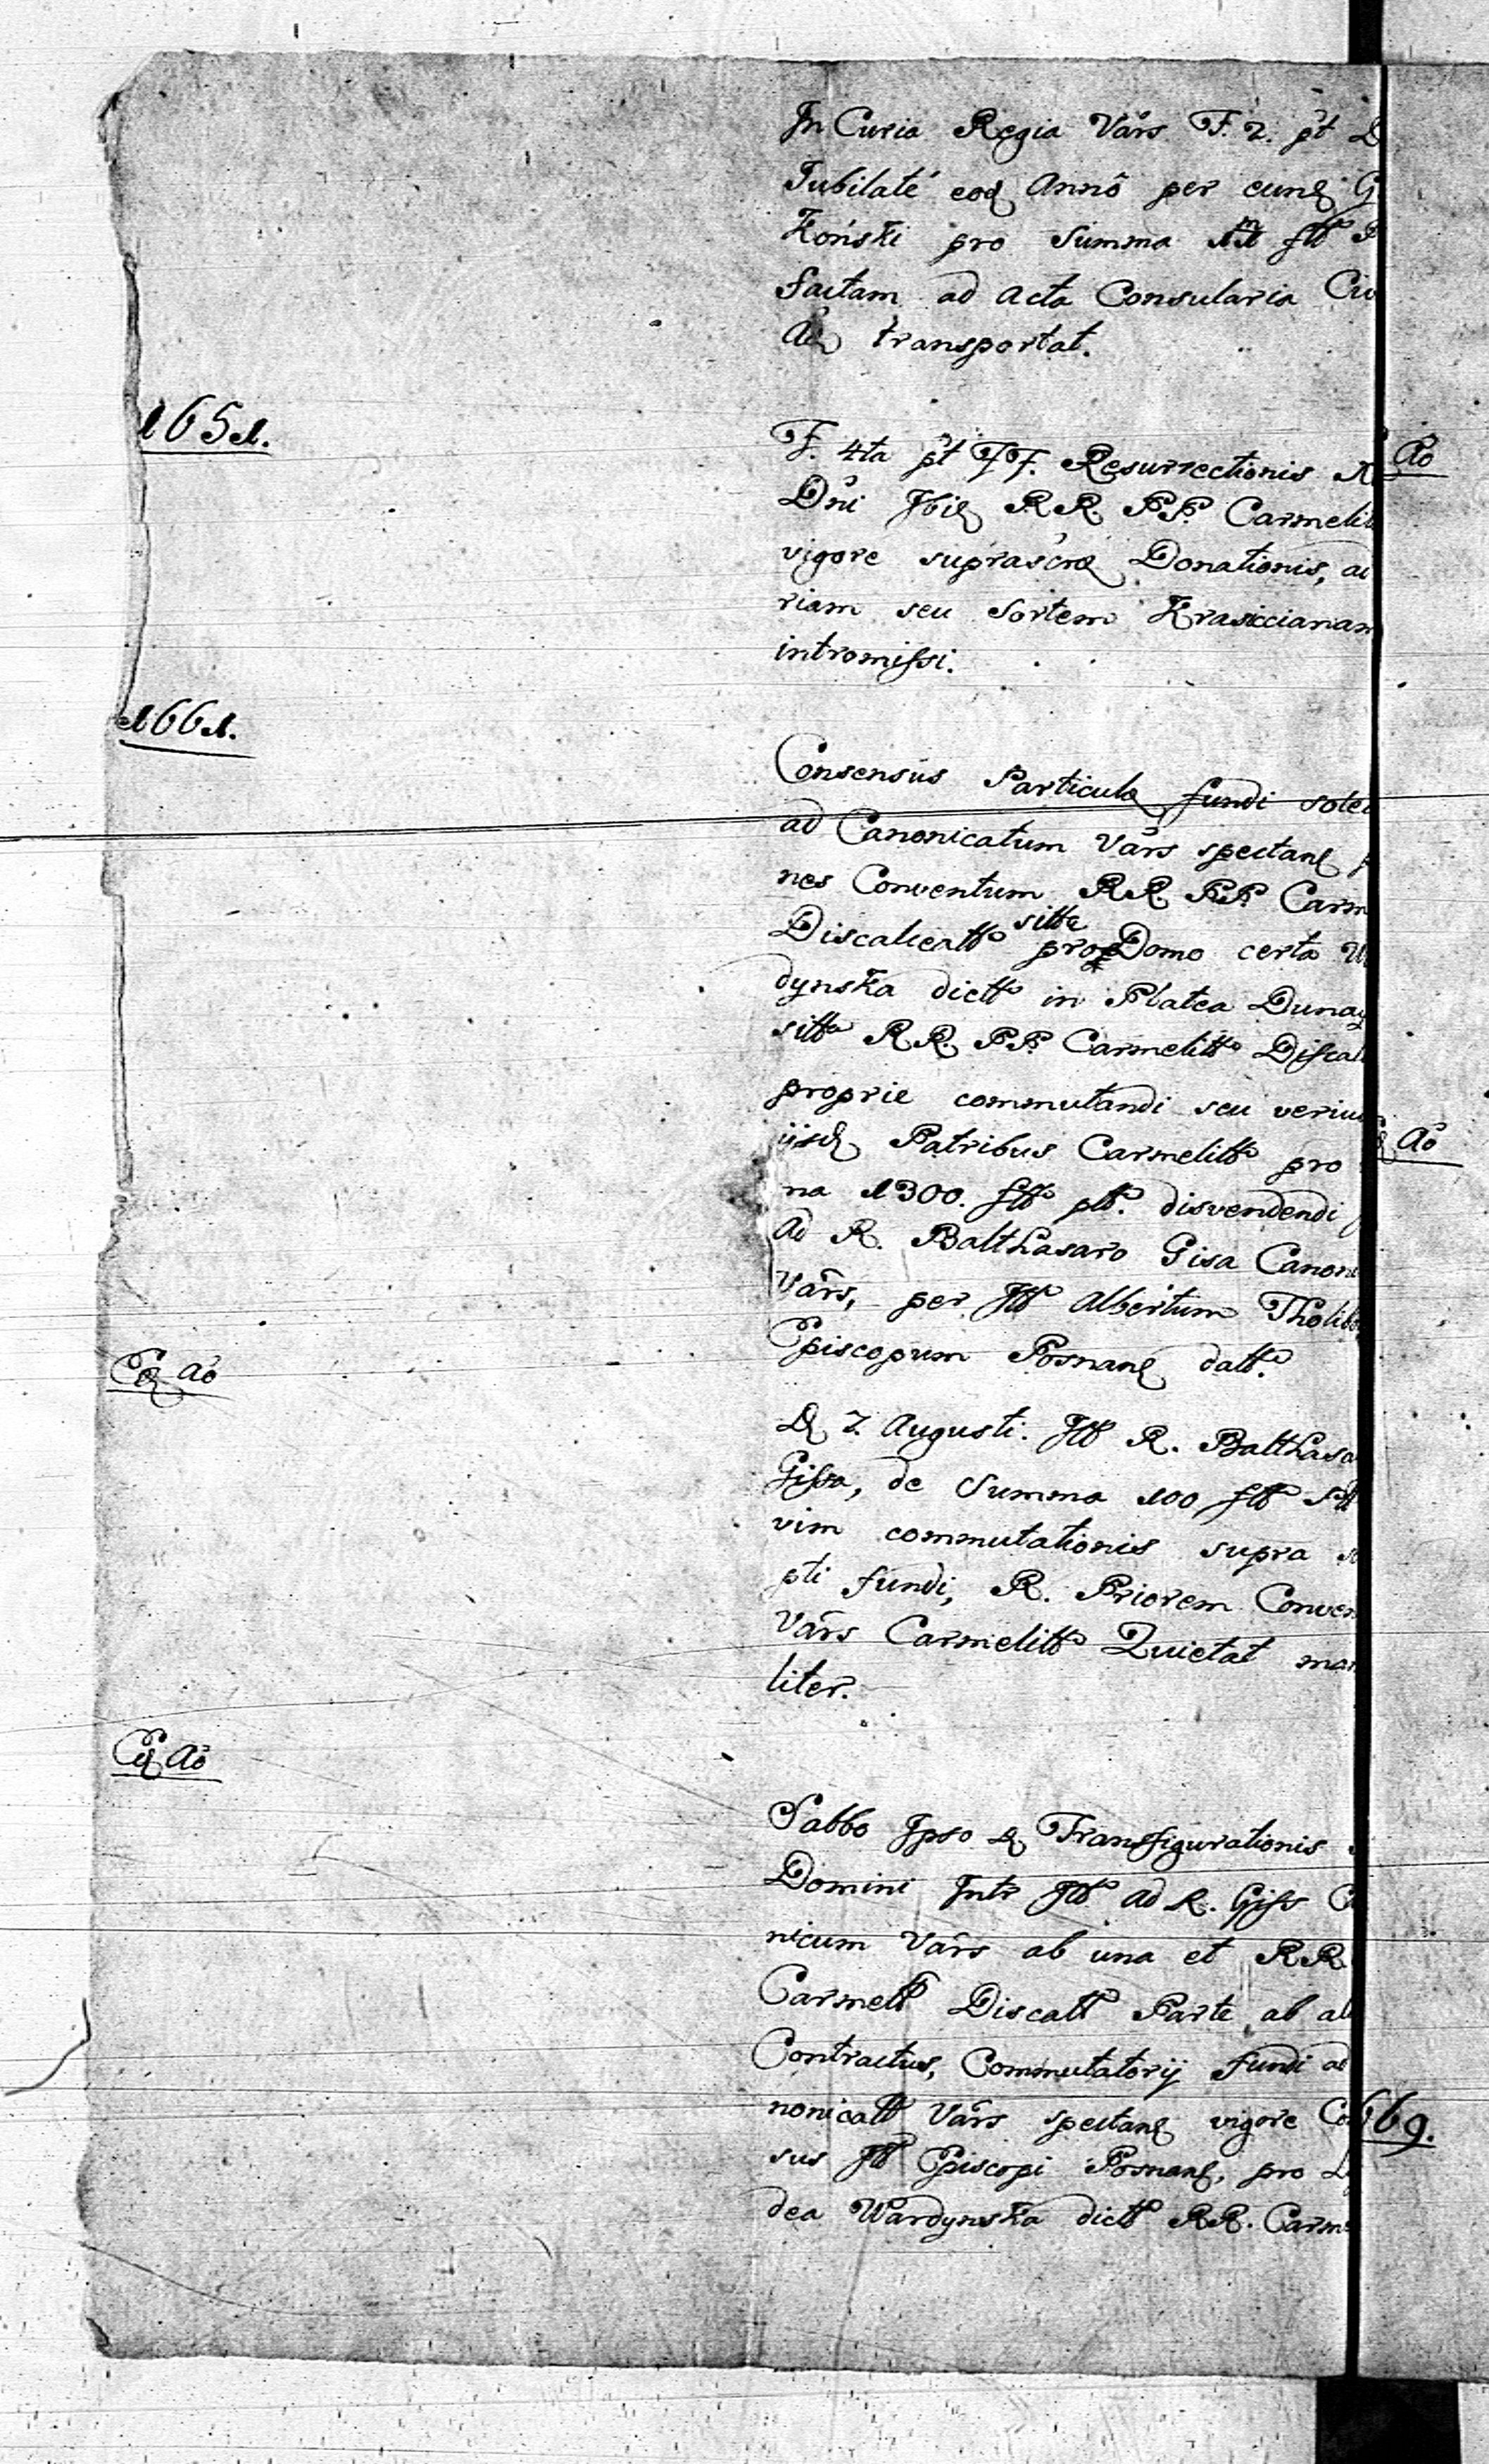 In Curia Regia Vârs F. 2. pt D
Jubilaté eoq Annô per eunq G
Koński pro Summa flô
factam ad Acta Consularia Civ
transportat.
1651.
F. 4ta pt FF. Resurrectionis
Dni Ibiq RR. PP. Carmelit
vigore suprascrq Donationis, ad
riam seu Sortem Krasiccianam
intromissi.
1661.
Consensus Particulq fundi
ad Canonicatum Vârs spectanq
nes Conventum RR PP Carm
Discalceattô sitta pro Domo certa
dynska dictô in Platea Dunay
sitta RR. PP. Carmelittô Discal
proprie commutandi seu verius
iisdq Patribus Carmelittô pro
na 1300. flô plô. disvendendi
Ad R. Balthasaro Gisa Canoni
Vârs, per Illô Albertum Tholib
Episcopum Posnanq dattô.
Eoq Aô
D 7. Augusti. Illô R. Balthasa
Gissa, de Summa 100 flô
vim commutationis supra
pti fundi, R. Priorem Conven
Vârs Carmelittô Quietat
liter.
Eoq Aô
Sabbo Ipso D Transfigurationis
Domini Intr Illô ad R. Giss
nicum Vârs ab una et RR
Carmelt Discalt Parte ab al
Contractus, Commutatorij fundi ad
nonicatt Vârs spectanq vigore Co
sus Illô Episcopi Posnanq, pro
dea Wardynska dictô RR. Carm
Aô
Aô
669.